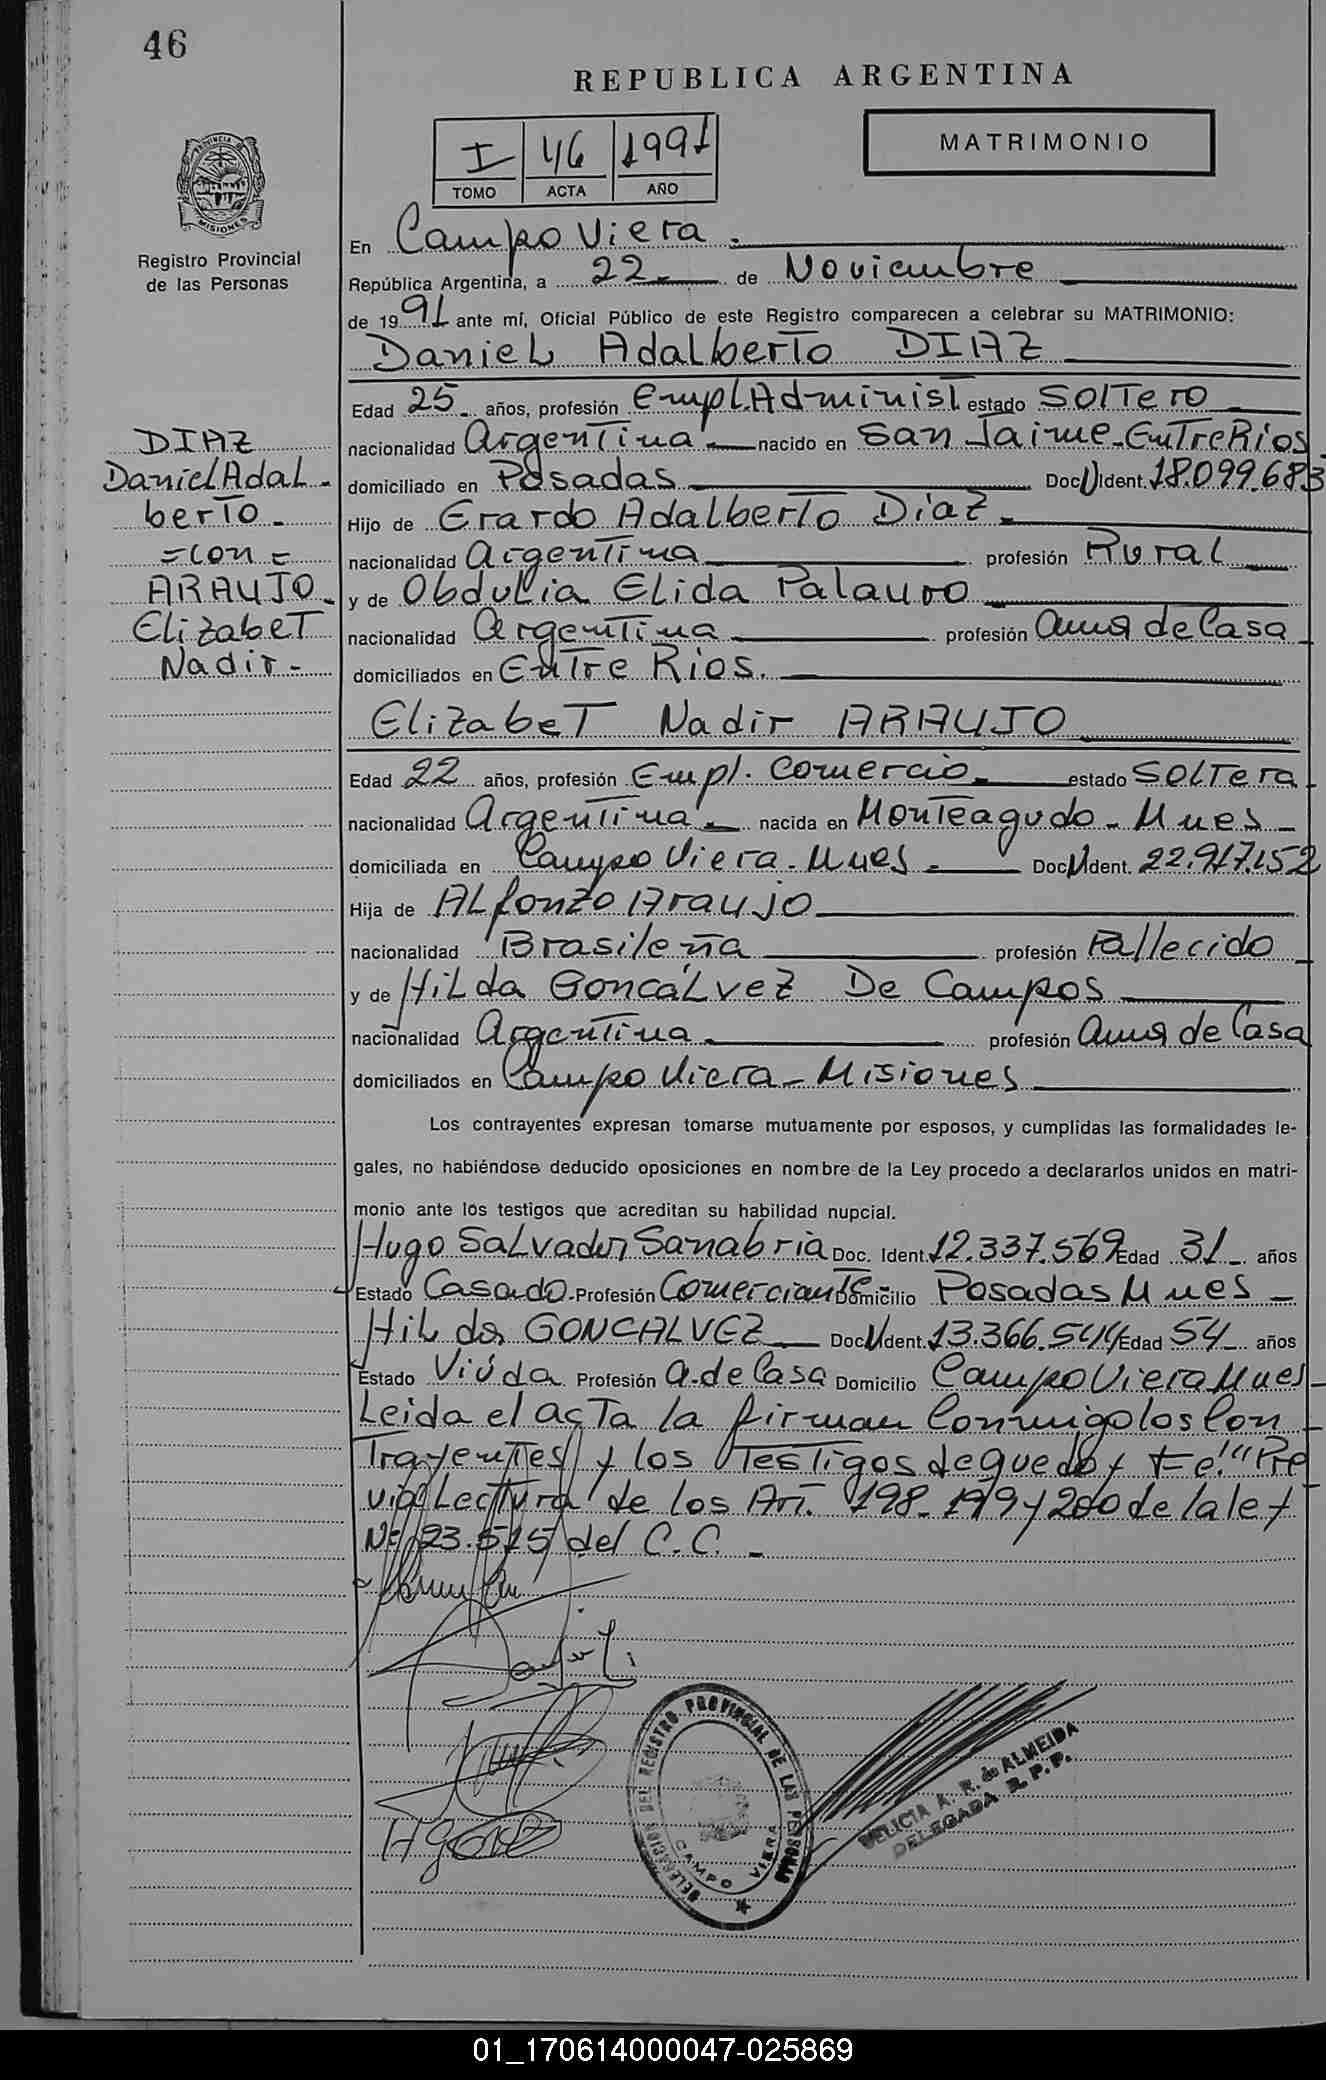 46
REPUBLICA ARGENTINA
I 46 1991
TOMO ACTA AÑO
MATRIMONIO
PROVINCIA DE
MISIONES
Registro Provincial
de las Personas
En Campo Viera.
República Argentina, a 22 de Noviembre
de 1991 ante mí, Oficial Público de este Registro comparecen a celebrar su MATRIMONIO:
Daniel Adalberto DIAZ
Edad 25 años, profesión Empl. Administ estado Soltero
nacionalidad Argentina nacido en San Jaime-Entre Rios
domiciliado en Posadas Doc U Ident. 18.099.683
Hijo de Erardo Adalberto Diaz
nacionalidad Argentina profesión Rural
y de Obdulia Elida Palauro
nacionalidad Argentina profesión Ama de Casa
domiciliados en Entre Rios.
DIAZ
Daniel Adal
berto
= con =
ARAUJO
Elizabet
Nadir
Elizabet Nadir ARAUJO
Edad 22 años, profesión Empl. Comercio estado Soltera
nacionalidad Argentina nacida en Monteagudo - Mnes
domiciliada en Campo Viera - Mnes Doc U Ident. 22.917.152
Hija de Alfonzo Araujo
nacionalidad Brasileña profesión Fallecido
y de Hilda Goncálvez De Campos
nacionalidad Argentina profesión Ama de Casa
domiciliados en Campo Viera - Misiones
Los contrayentes expresan tomarse mutuamente por esposos, y cumplidas las formalidades le-
gales, no habiéndose deducido oposiciones en nombre de la Ley procedo a declararlos unidos en matri-
monio ante los testigos que acreditan su habilidad nupcial.
Hugo Salvador Sanabria Doc. Ident. 12.337.569 Edad 31 años
Estado Casado Profesión Comerciante Domicilio Posadas Mnes
Hilda GONCALVEZ Doc U Ident. 13.366.544 Edad 54 años
Estado Viúda Profesión A. de Casa Domicilio Campo Viera Mnes
Leida el acta la firman Conmigo los Con
Trayentes y los Testigos de que doy Fe! "Pre
via Lectura de los Art. 198-199 y 200 de la ley
Nº 23.515 del C.C.
DELEGACION DEL REGISTRO PROVINCIAL DE LAS PERSONAS
CAMPO VIERA
DELICIA A. R. de ALMEIDA
DELEGADA R. P. P.
01_170614000047-025869